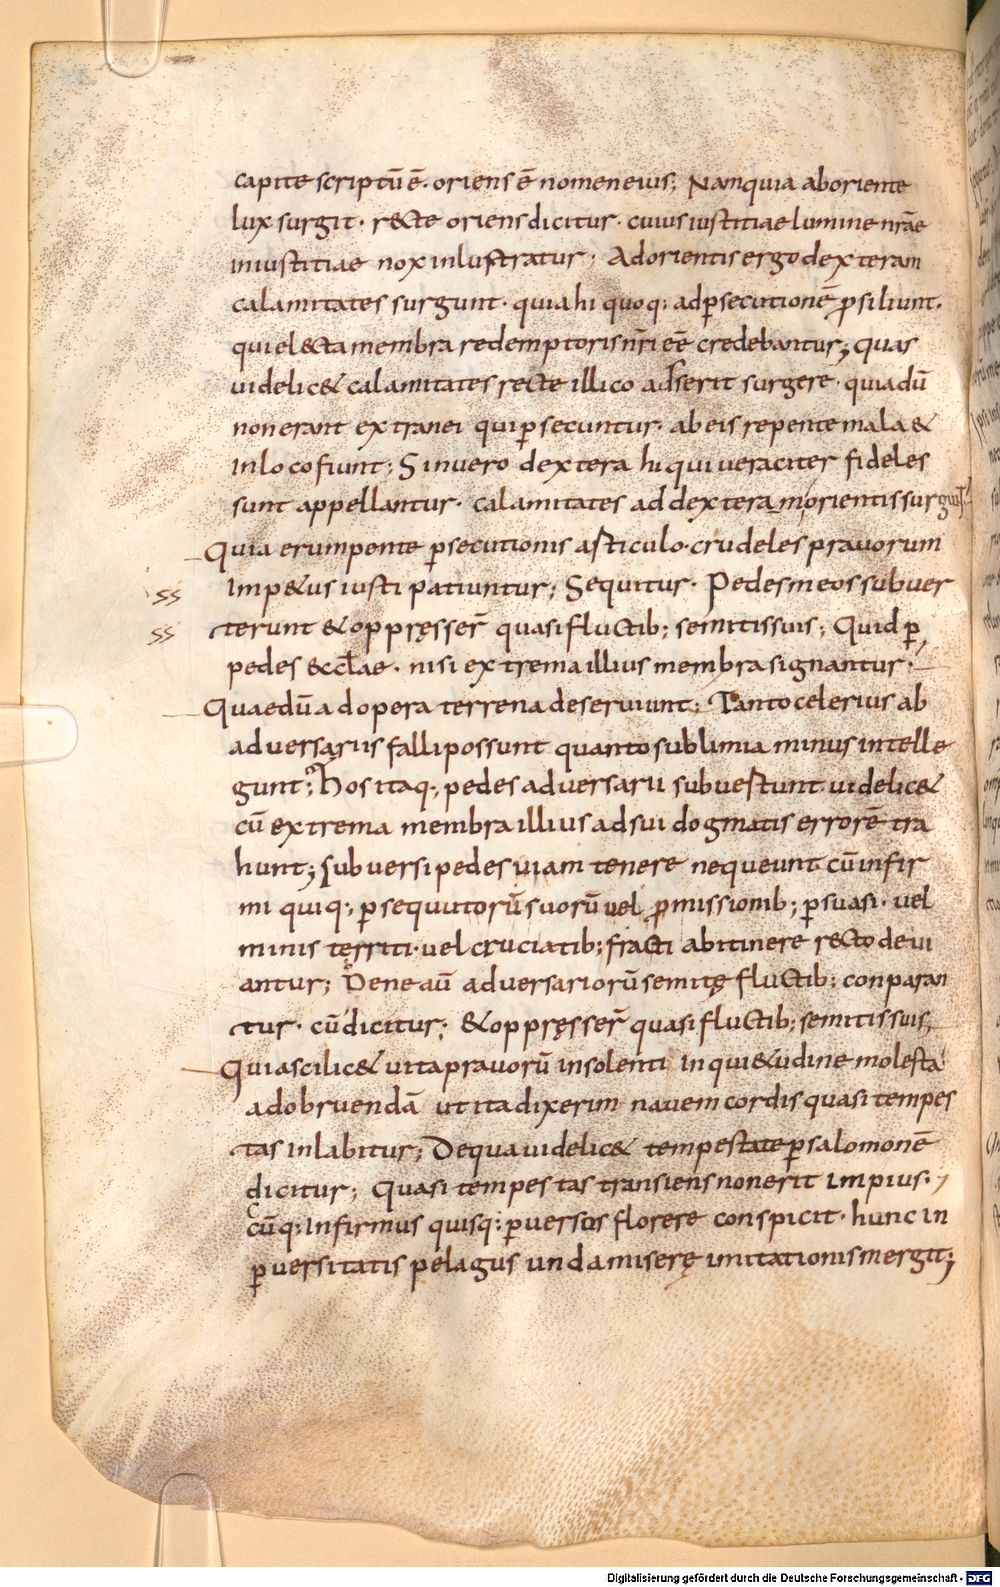 capite scriptū ē· oriens ē nomen eius; Nam quia aboriente
lux surgit· recte oriens dicitur· cuius iustitiae lumine nr̄ae
iniustitiae nox inlustratur; Ad orientis ergo dexteram
calamitates surgunt· quia hi quoq; ad ꝑsecutionē ꝓsiliunt·
qui electa membra redemptoris nr̄i eē credebantur; quas
videlic& calamitates recte illico adserit surgere· quia dū
non erant extranei qui ꝑsecuntur· ab eis repente mala &
in loco fiunt; Sin vero dextera hi qui veraciter fideles
sunt appellantur· calamitates ad dexteram orientis surgunt
Quia erumpente ꝑsecutionis articulo· crudeles pravorum
imp&us iusti patiuntur; Sequitur· Pedes meos subver
terunt & oppręsser̄ quasi fluctib; semitis suis; Quid ꝑ
pedes eccl̄ae· nisi extrema illius membra signantur·
Quae dū ad opera terrena deserviunt; Tanto celerius ab
adversariis falli possunt quanto sublimia minus intelle
gunt; Hos itaq; pedes adversarii subvertunt· videlic&
cū extrema membra illius ad sui dogmatis errorē tra
hunt; subversi pedes viam tenere nequeunt cū infir
mi quiq; ꝑsequutorū suorū vel ꝓmissionib; ꝑsuasi· vel
minis territi· vel cruciatib; fracti ab itinere recto devi
antur; Bene aū adversariorū semitę fluctib; conparan
tur· cū dicitur; & oppręsser̄ quasi fluctib; semitis suis;
Quia scilic& vita pravorū insolenti inqui&udine molesta
ad obruendā ut ita dixerim navem cordis quasi tempes
tas inlabitur; De qua videlic& tempestate ꝑ salomonē
dicitur; Quasi tempestas transiens non erit impius·
cūq; infirmus quisq; ꝑversos florere conspicit· hunc in
ꝑversitatis pelagus unda miserę imitationis mergit;
ss
ss
Digitalisierung gefördert durch die Deutsche Forschungsgemeinschaft - DFG